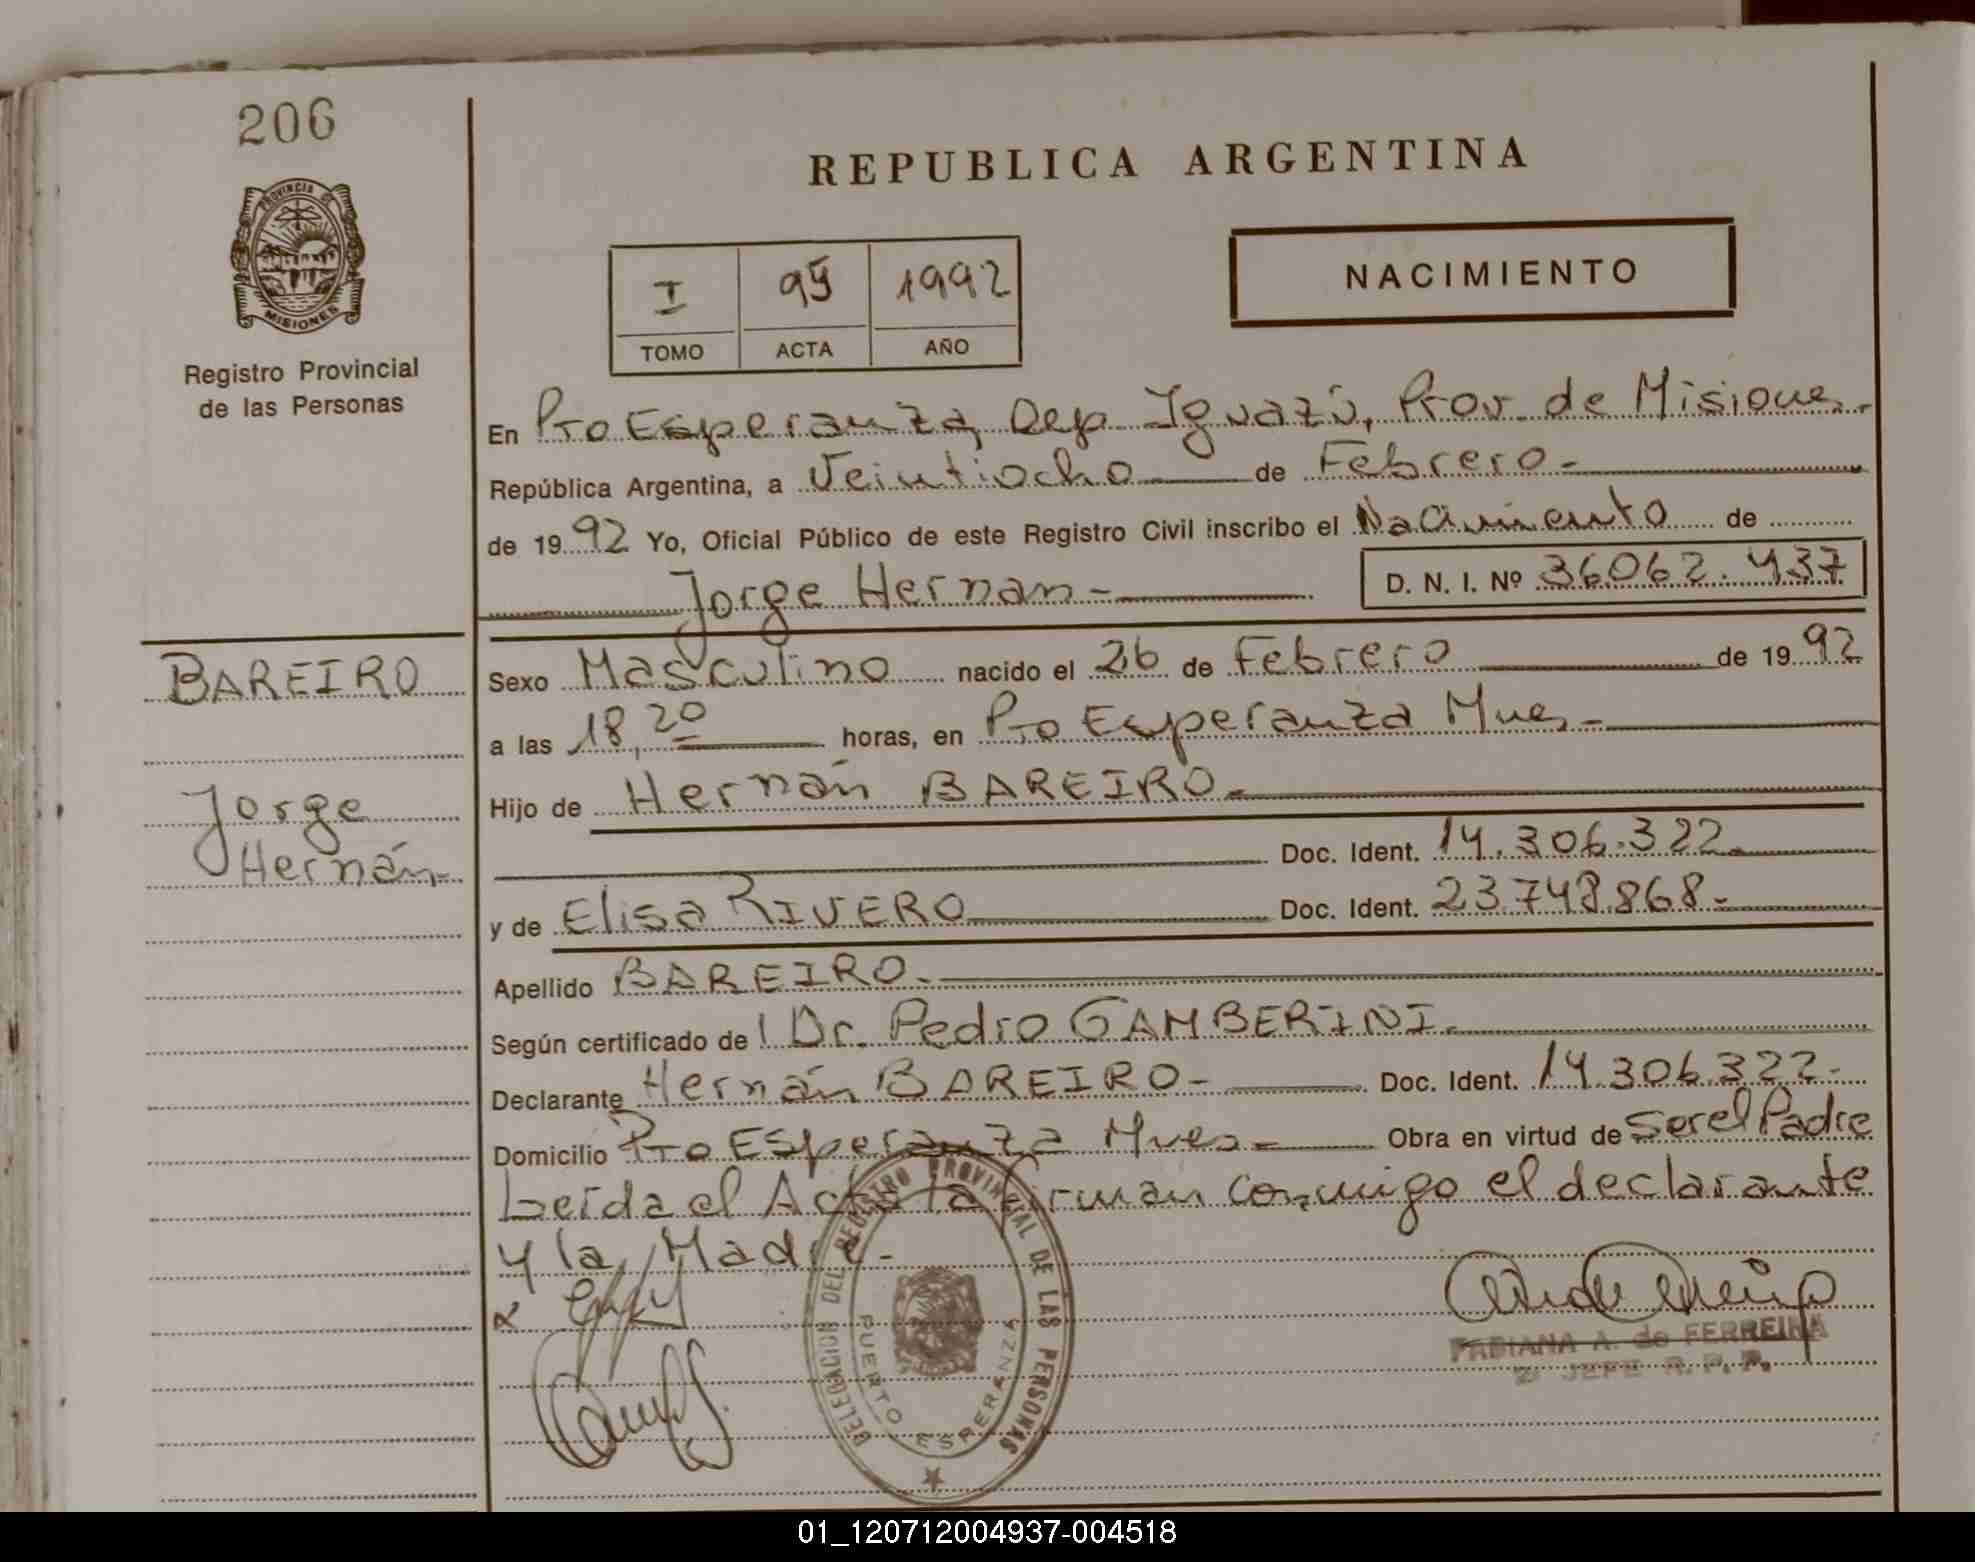 206
REPUBLICA ARGENTINA
PROVINCIA DE
MISIONES
Registro Provincial
de las Personas
I
95
1992
TOMO
ACTA
AÑO
NACIMIENTO
En Pto Esperanza, Dep. Iguazú, Prov. de Misiones.
República Argentina, a Veintiocho de Febrero.-
de 1992 Yo, Oficial Público de este Registro Civil inscribo el Nacimiento de
Jorge Hernan- D. N. I. Nº 36062.437
BAREIRO
Jorge
Hernán-
Sexo Masculino nacido el 26 de Febrero de 1992
a las 18,20 horas, en Pto Esperanza Mnes.-
Hijo de Hernán BAREIRO.
Doc. Ident. 14.306.322.
y de Elisa RIVERO Doc. Ident. 23.748.868-
Apellido BAREIRO.-
Según certificado de l Dr. Pedro GAMBERINI.
Declarante Hernán BAREIRO- Doc. Ident. 14.306.322-
Domicilio Pto Esperanza Mnes.- Obra en virtud de Ser el Padre
Leída el Acta la firman conmigo el declarante
y la Madre-
DELEGACION DEL REGISTRO PROVINCIAL DE LAS PERSONAS
PUERTO ESPERANZA
FABIANA A. de FERREIRA
2 JEFE R. P. P.
01_120712004937-004518